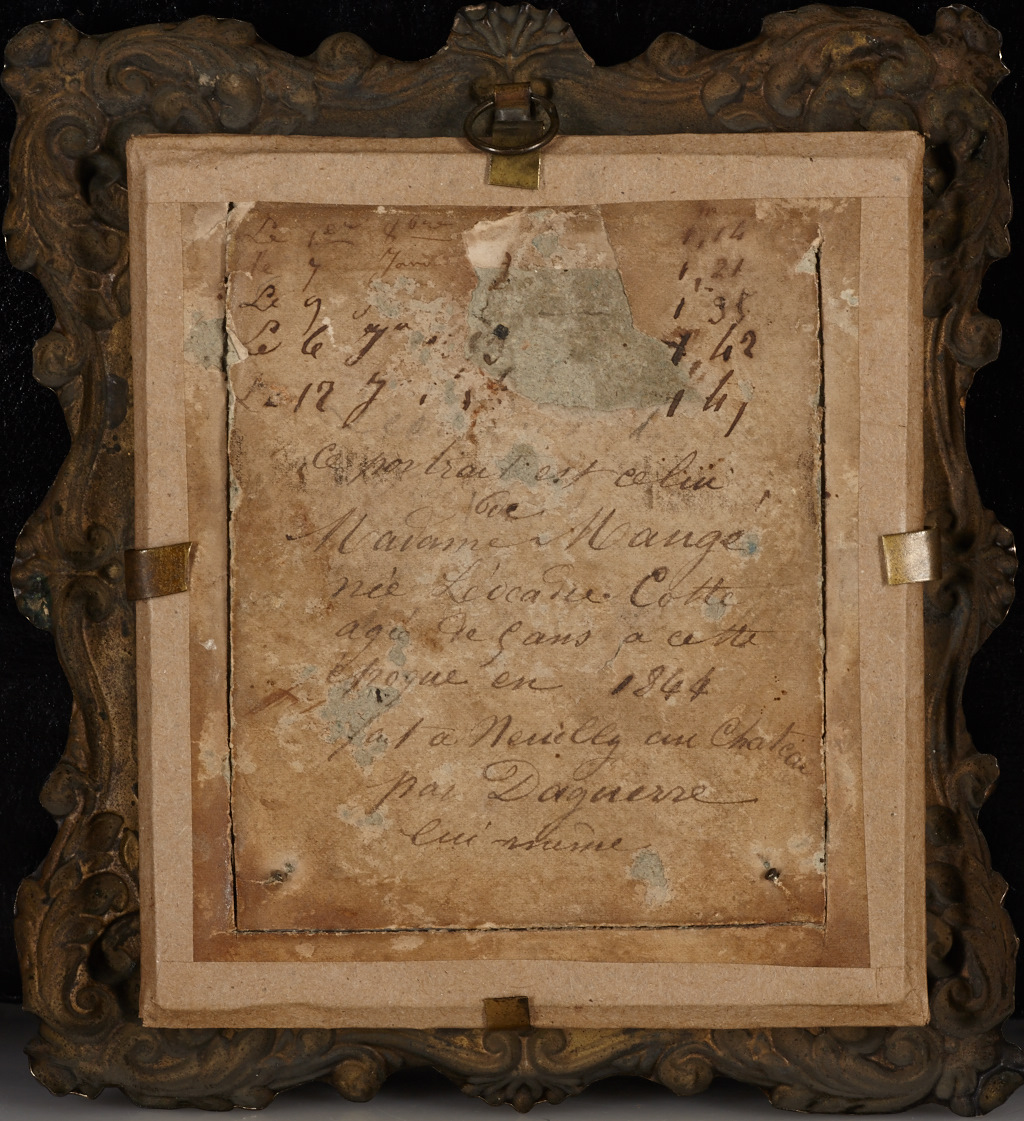 Le 1er 9bre 1,14
le 7 Janv 1,21
Le 9 1,35
Le 6 Jr 1,42
Le 12 J 1,41
ce portrait est celui
de
Madame Mange
née Léocadie Cotte
agée de 5 ans a cette
époque en 1844
fait a Neuilly au Chateau
par Daguerre
lui même